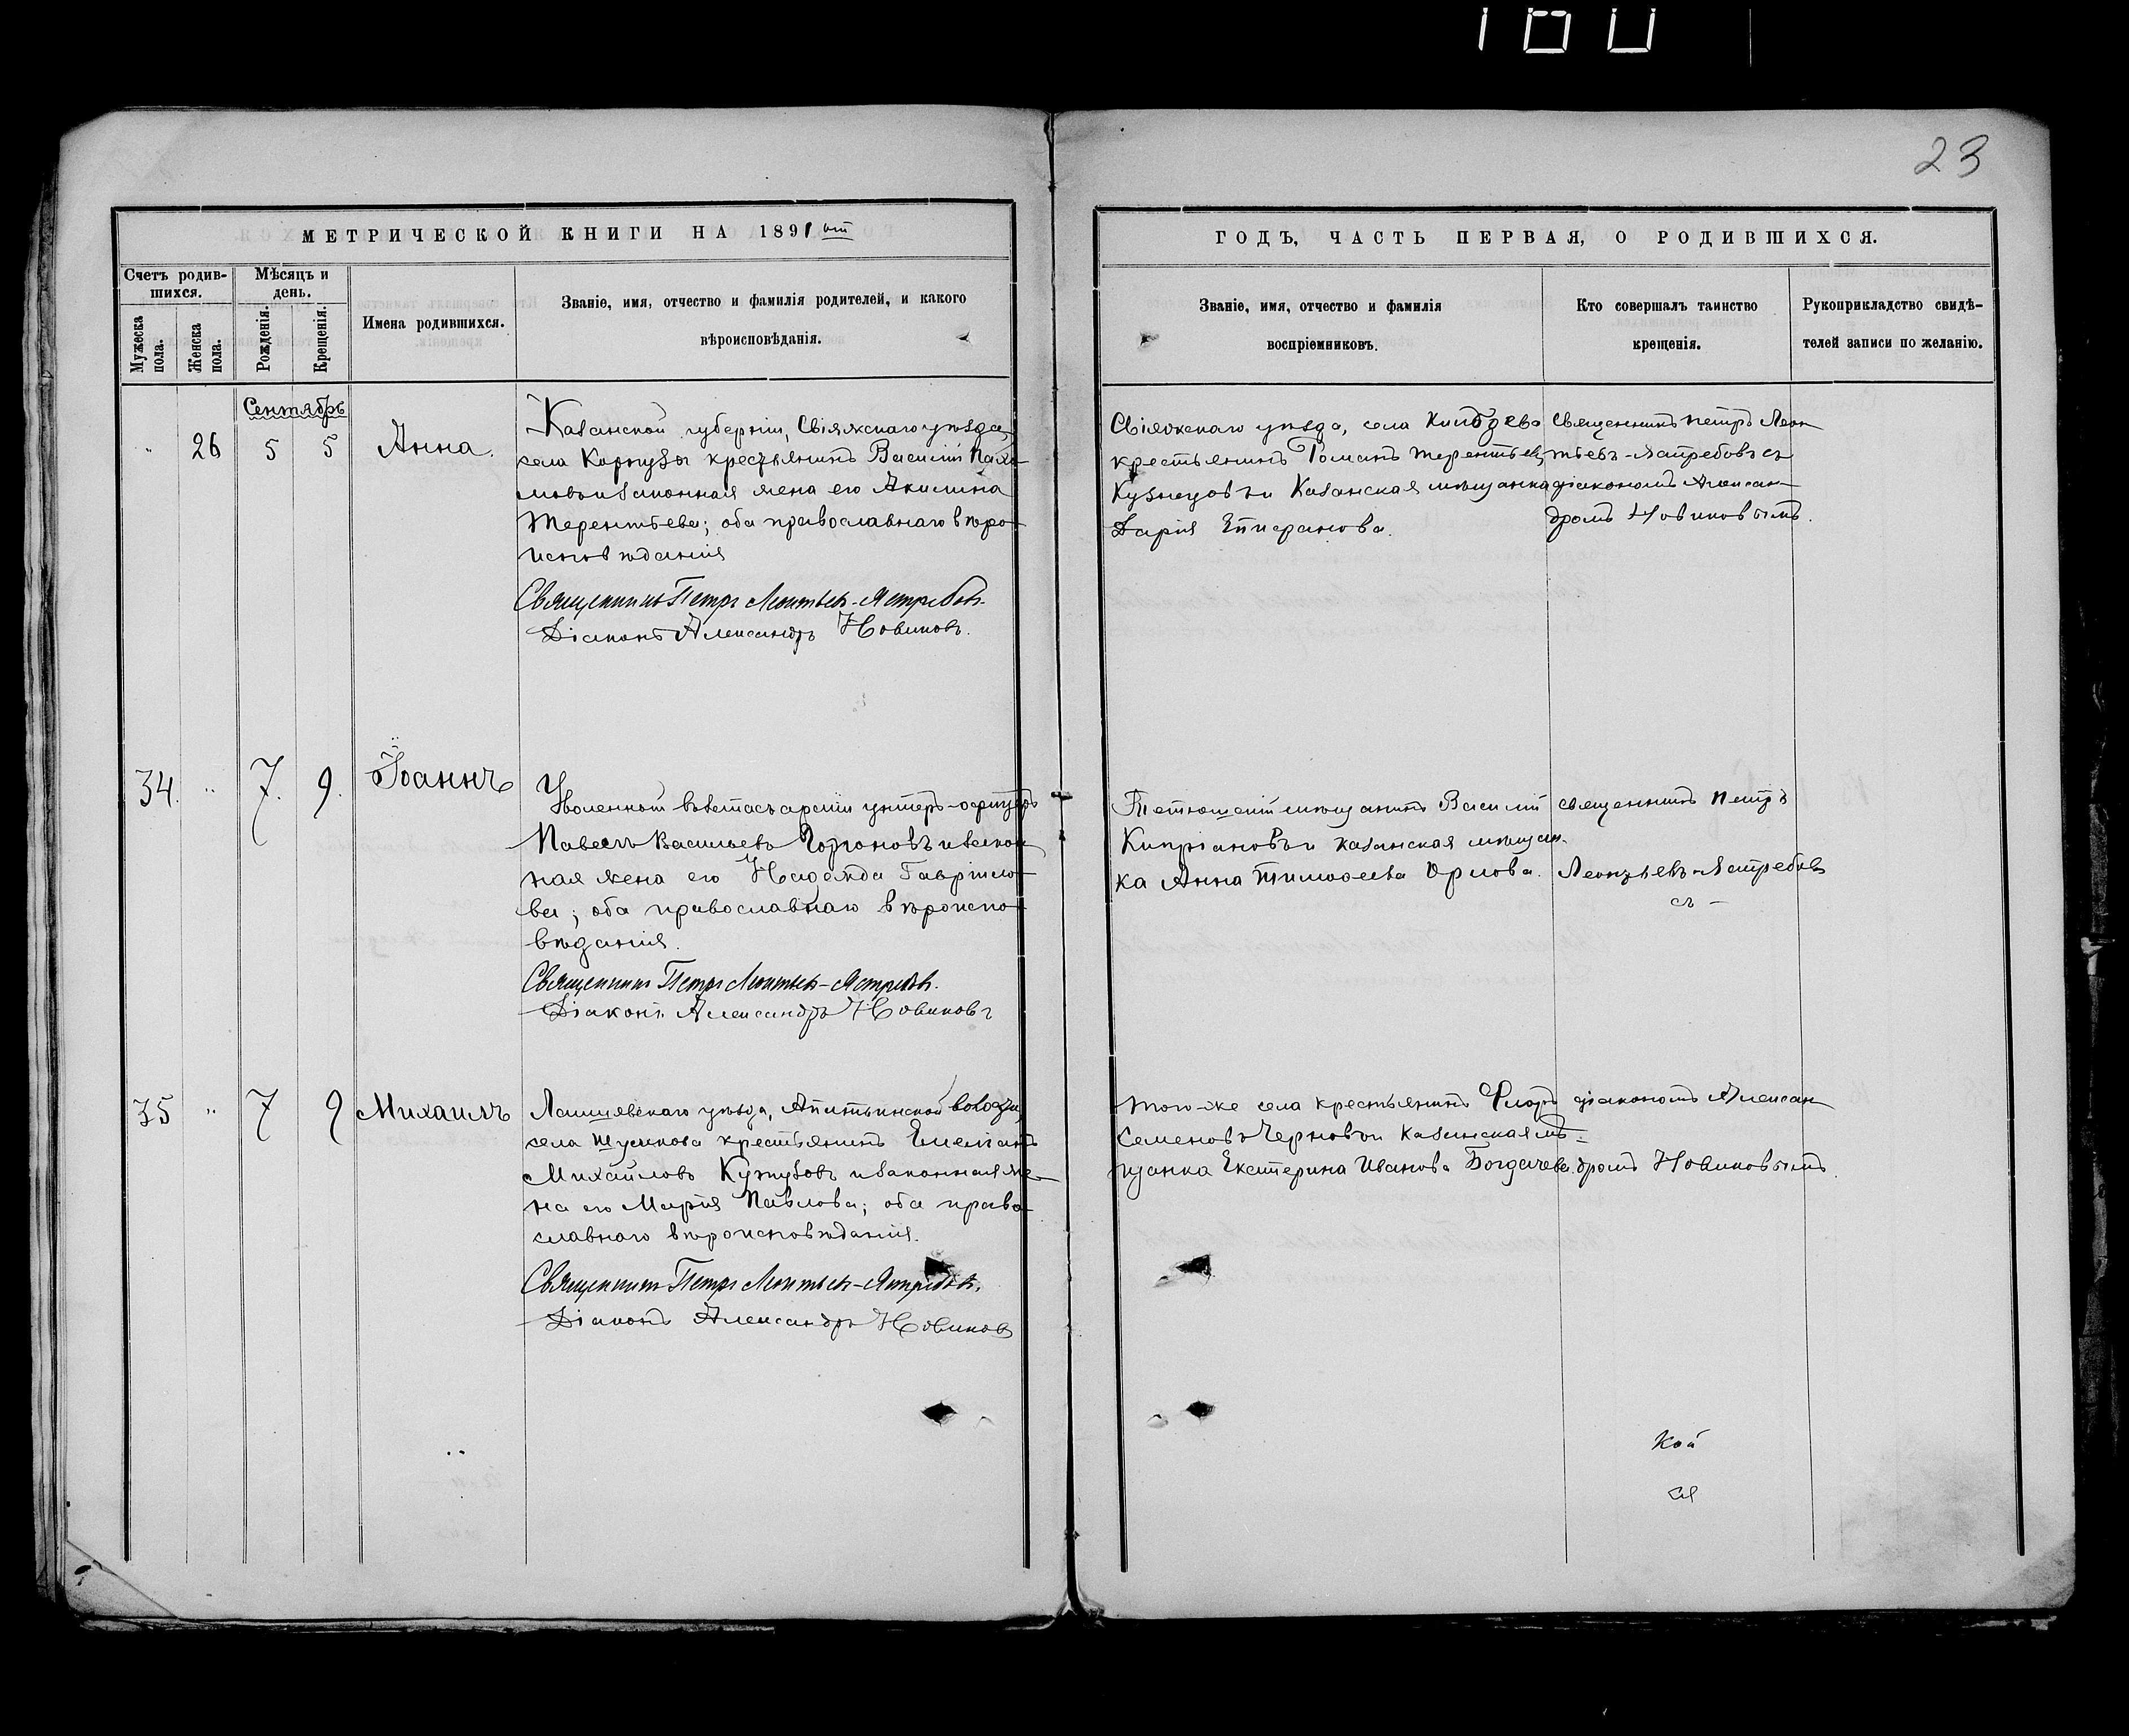 180
23
МЕТРИЧЕСКОЙ КНИГИ НА 1891ый
ГОДЪ, ЧАСТЬ ПЕРВАЯ, О РОДИВШИХСЯ.
Счетъ родив-
шихся.
Мужеска
пола.
Женска
пола.
Мѣсяцъ и
день.
Рожденія.
Крещенія.
Имена родившихся.
Званіе, имя, отчество и фамилія родителей, и какого
вѣроисповѣданія.
Званіе, имя, отчество и фамилія
воспріемниковъ.
Кто совершалъ таинство
крещенія.
Рукоприкладство свидѣ-
телей записи по желанію.
Сентябрь
" 26 5 5 Анна.
Казанской губерніи, Свіяжскаго уѣзда,
села крестьянинъ Василій Пахо-
мовъ и законная жена его Акилина
Терентьева; оба православнаго вѣро-
исповѣданія
Священникъ Петръ Леонтьевъ-Ястребовъ.
Діаконъ Александръ Новиковъ.
Свіяжскаго уѣзда, села
крестьянинъ Романъ Терентьевъ
Кузнецовъ и Казанская мѣщанка
Дарія Епифанова.
Священникъ Петръ Леон
тьевъ-Ястребовъ съ
діакономъ Алексан-
дромъ Новиковымъ.
34. " 7. 9. Іоаннъ
Уволенной въ запасъ арміи унтеръ-офицеръ
Павелъ Васильевъ и закон
ная жена его Надежда Гаврило-
ва; оба православнаго вѣроиспо-
вѣданія.
Священникъ Петръ Леонтьевъ-Ястребовъ.
Діаконъ Александръ Новиковъ
Тетюшскій мѣщанинъ Василій
Кипріановъ и казанская мѣщан-
ка Анна Тимоѳеева Орлова.
священникъ Петръ
Леонтьевъ-Ястребовъ
съ -
35 " 7 9 Михаилъ
Лаишевскаго уѣзда, волости,
села крестьянинъ Емеліанъ
Михайловъ и законная же-
на его Марія Павлова; оба право-
славнаго вѣроисповѣданія.
Священникъ Петръ Леонтьевъ-Ястребовъ.
Діаконъ Александръ Новиковъ
того-же села крестьянинъ Флоръ
Семеновъ Черновъ и Казанская мѣ-
щанка Екатерина Иванова Богдачева.
діакономъ Алексан
дромъ Новиковымъ.
кой
ся